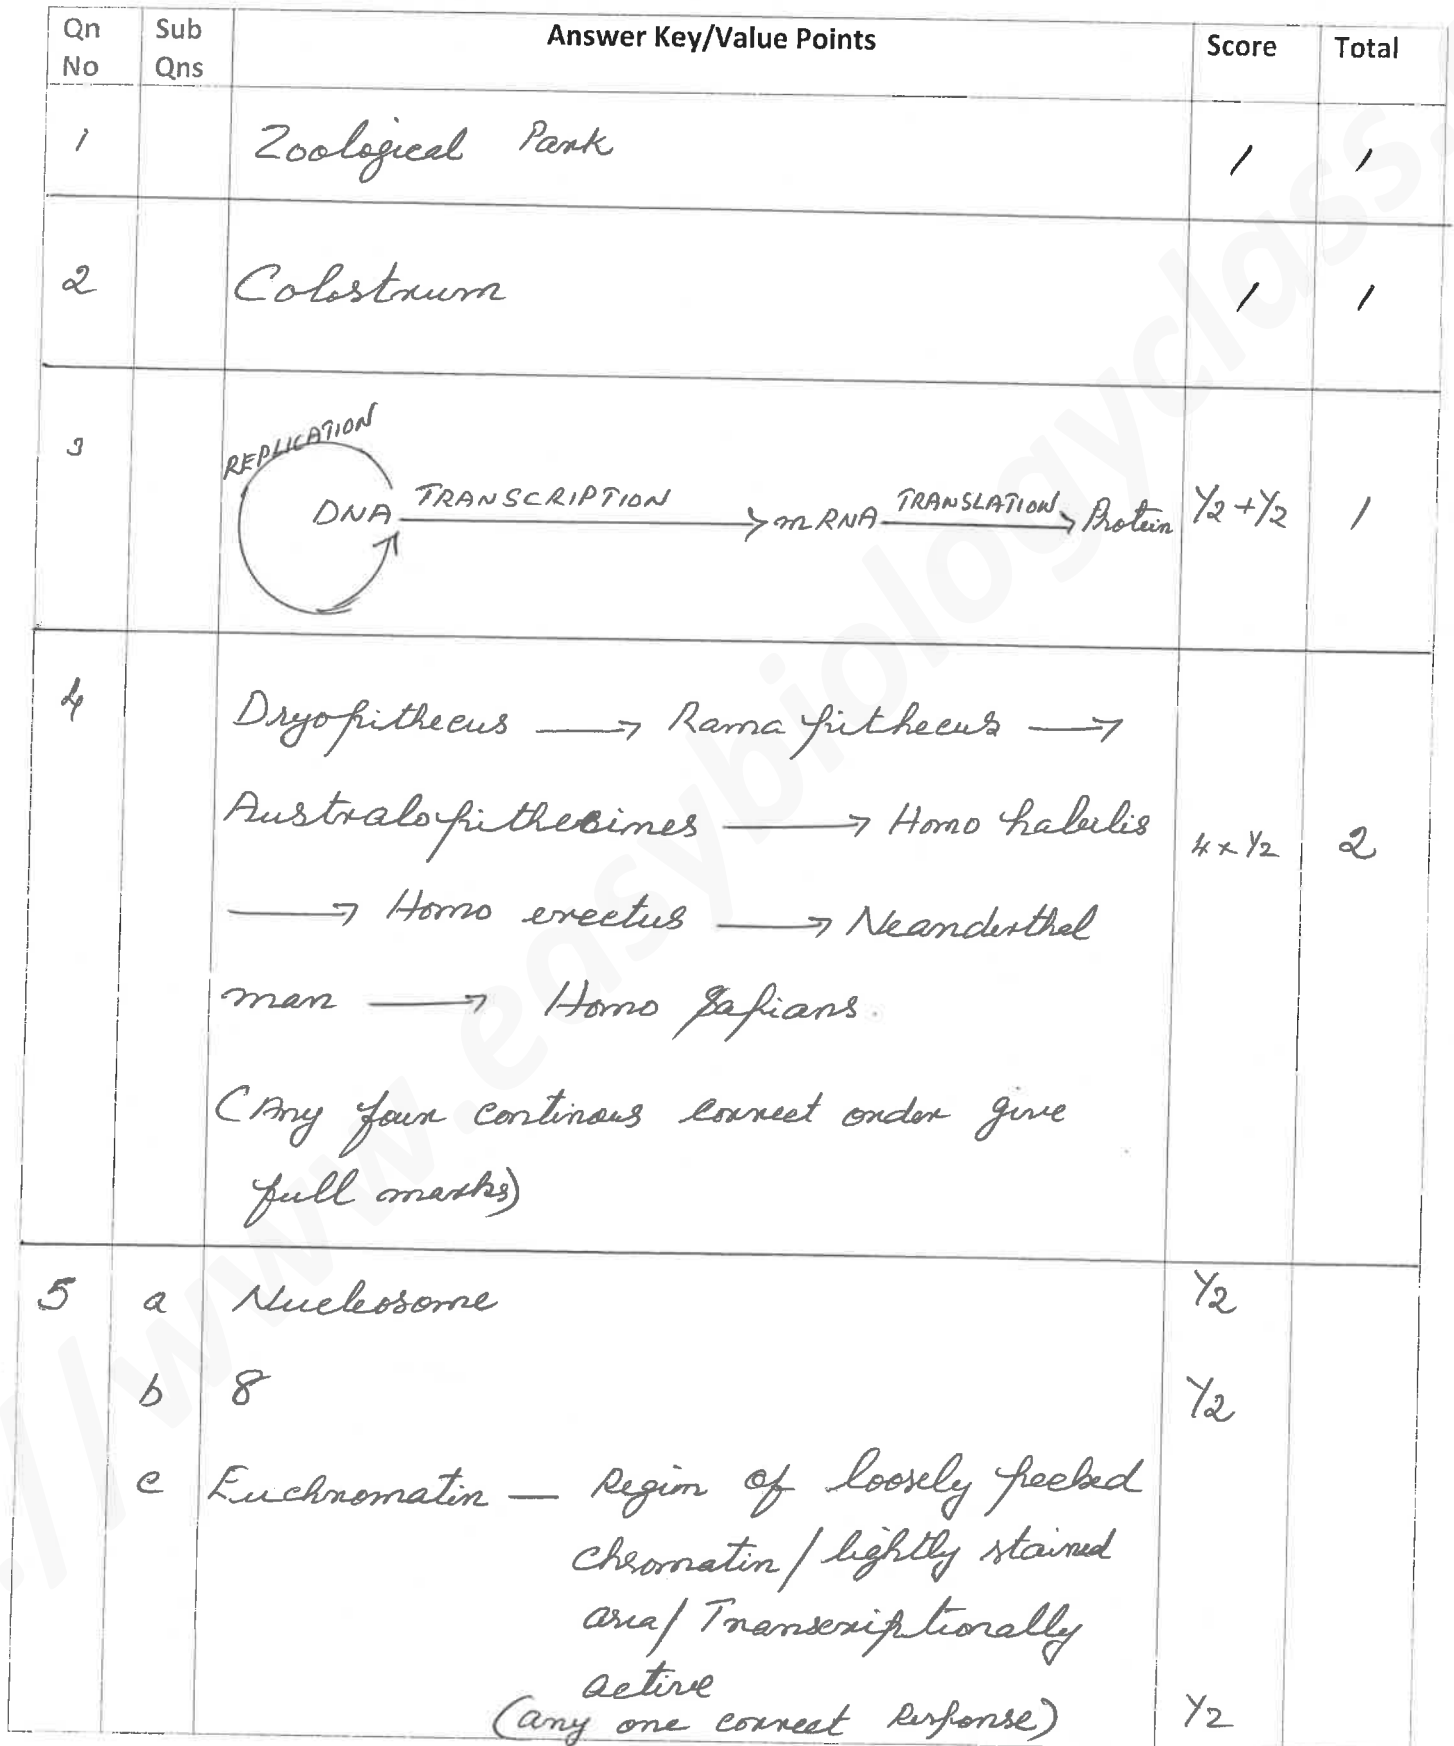 Qn No Sub Qns Answer Key/Value Points Score Total
1 Zoological Park 1 1
2 Colostrum 1 1
REPLICATION
3 DNA TRANSCRIPTION mRNA TRANSLATION Protein ½+½ 1
4 Dryopithecus → Ramapithecus →
Australopithecines → Homo habilis 4 x ½ 2
→ Homo erectus → Neanderthal
man → Homo Sapians.
(Any four continous correct order give
full marks)
5 a Nucleosome ½
b 8 ½
c Euchromatin — Region of loosely packed
chromatin / lightly stained
area / Transcriptionally
active
(any one correct Response) ½
://www.easybiologyclass.